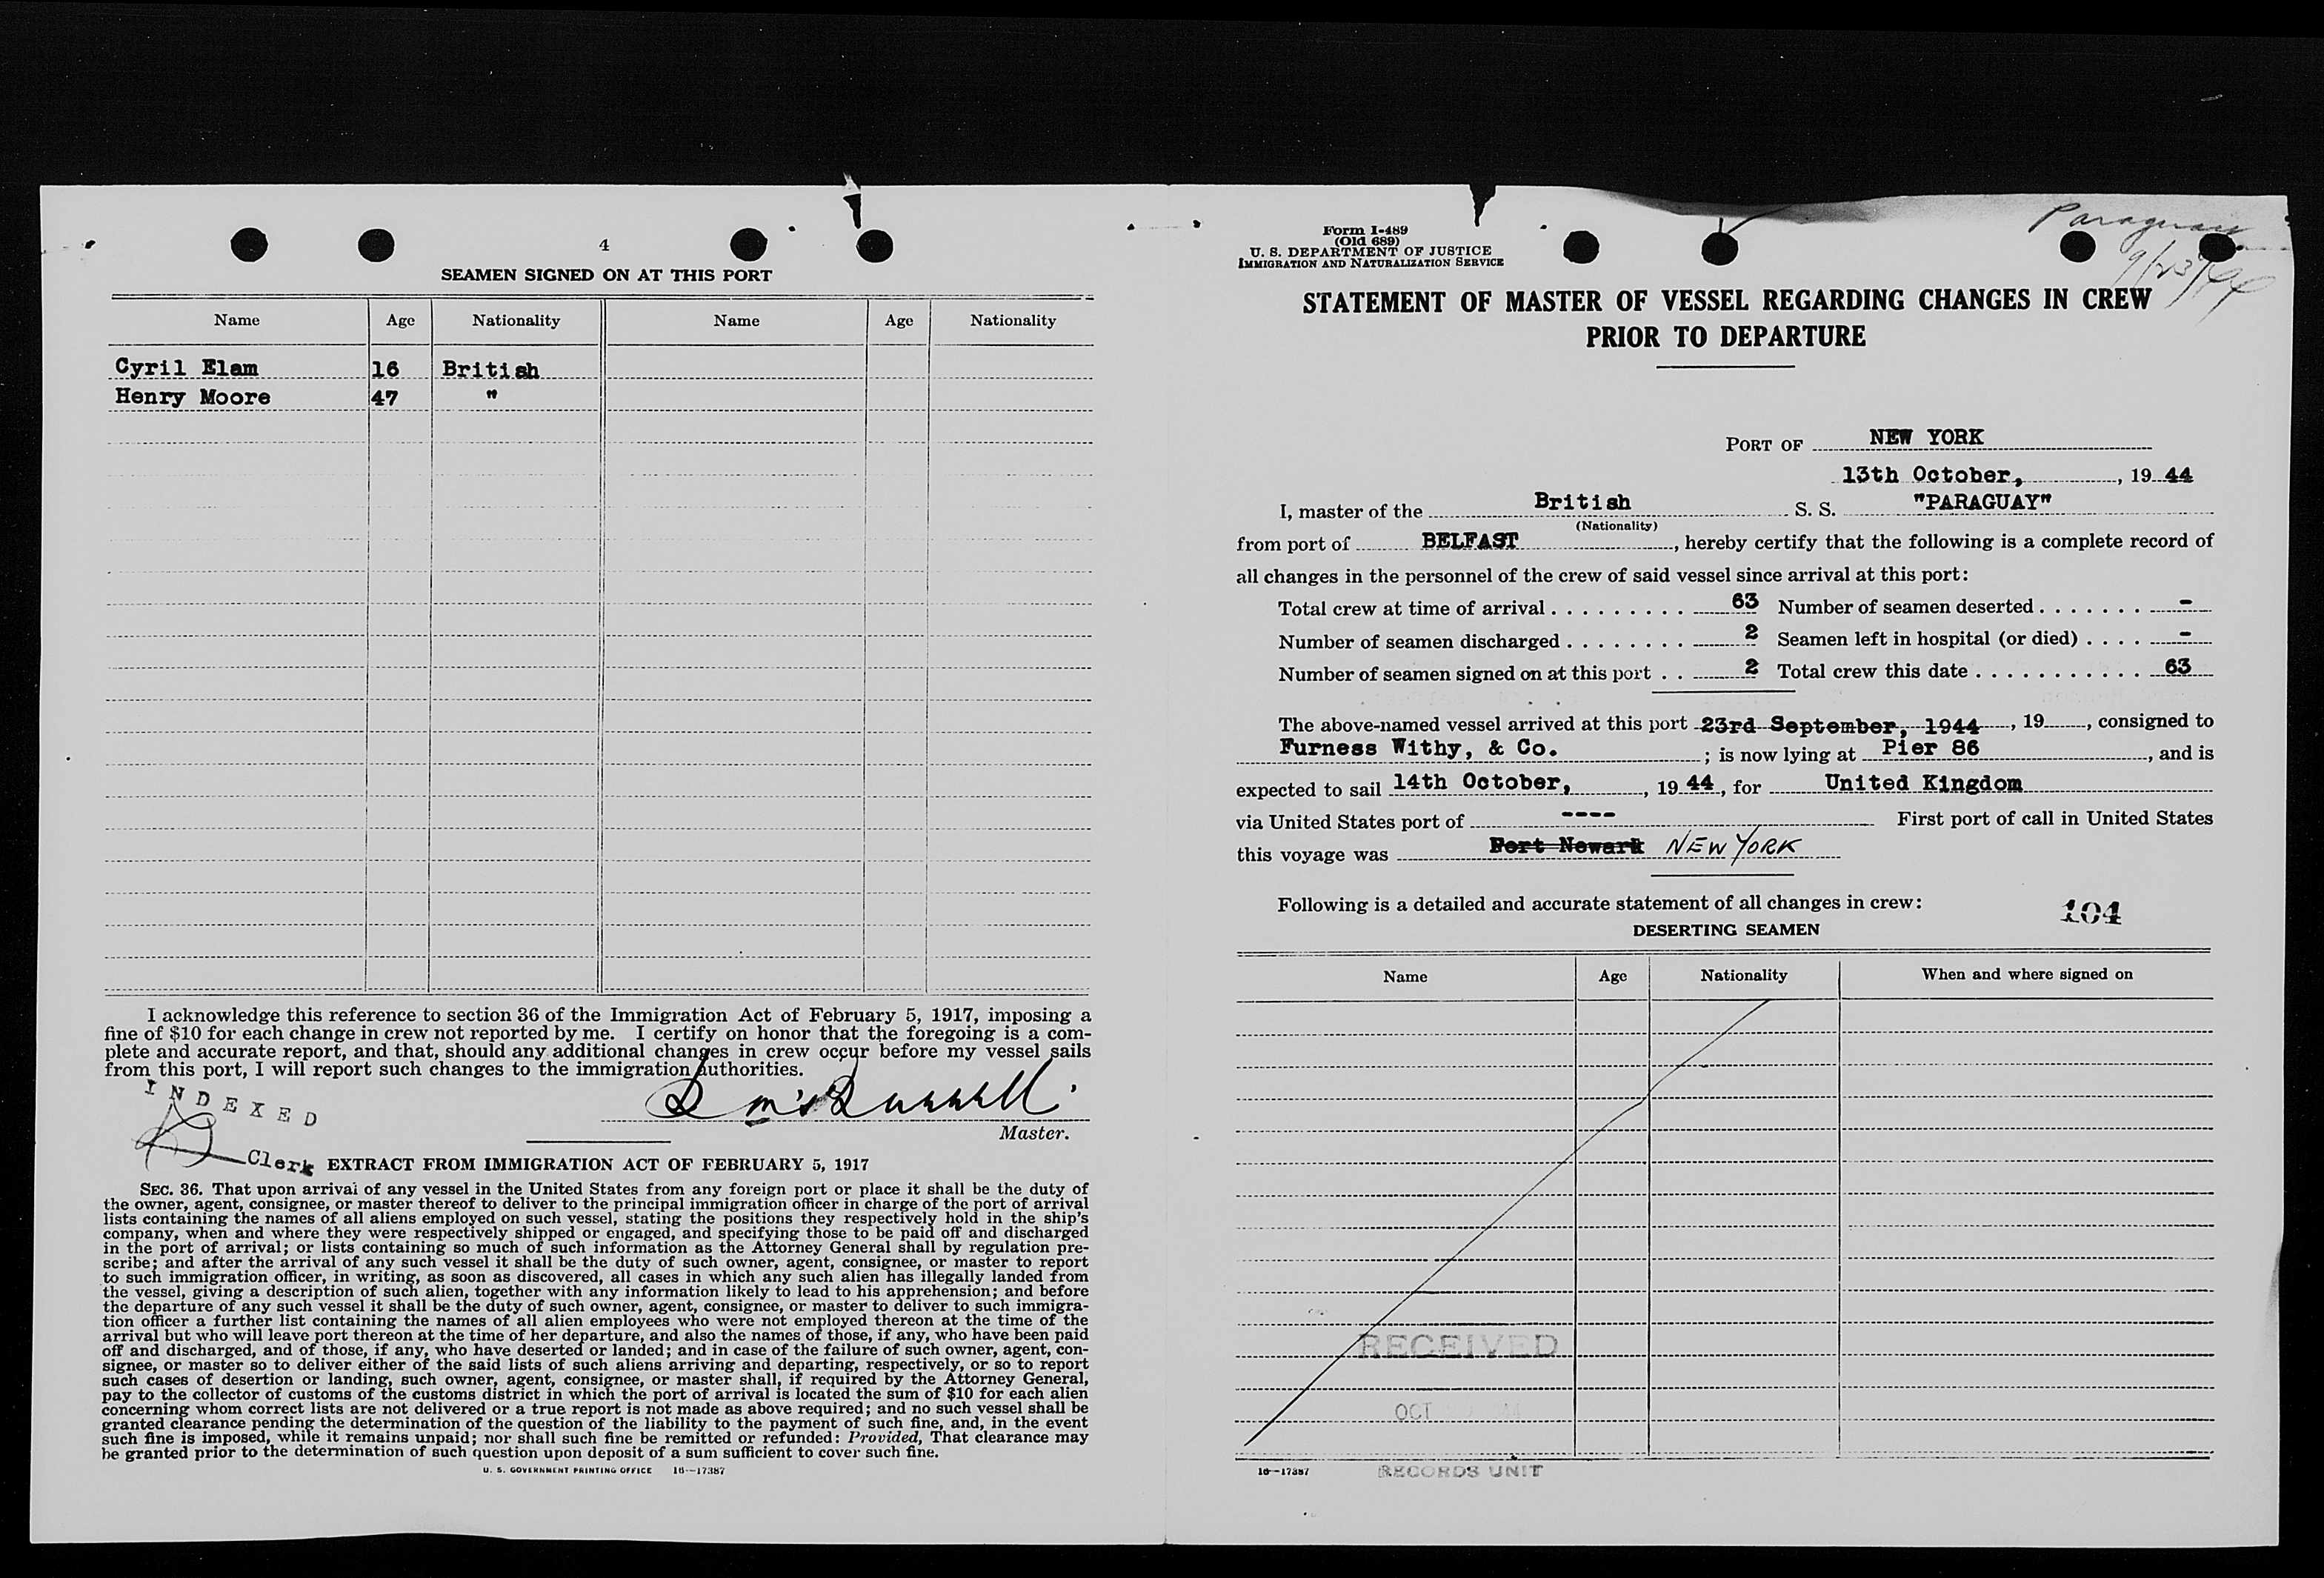 4
SEAMEN SIGNED ON AT THIS PORT
Name Age Nationality Name Age Nationality
Cyril Elam 16 British
Henry Moore 47 "
I acknowledge this reference to section 36 of the Immigration Act of February 5, 1917, imposing a
fine of $10 for each change in crew not reported by me. I certify on honor that the foregoing is a com-
plete and accurate report, and that, should any additional changes in crew occur before my vessel sails
from this port, I will report such changes to the immigration authorities.
INDEXED
Master.
Clerk
EXTRACT FROM IMMIGRATION ACT OF FEBRUARY 5, 1917
SEC. 36. That upon arrival of any vessel in the United States from any foreign port or place it shall be the duty of
the owner, agent, consignee, or master thereof to deliver to the principal immigration officer in charge of the port of arrival
lists containing the names of all aliens employed on such vessel, stating the positions they respectively hold in the ship's
company, when and where they were respectively shipped or engaged, and specifying those to be paid off and discharged
in the port of arrival; or lists containing so much of such information as the Attorney General shall by regulation pre-
scribe; and after the arrival of any such vessel it shall be the duty of such owner, agent, consignee, or master to report
to such immigration officer, in writing, as soon as discovered, all cases in which any such alien has illegally landed from
the vessel, giving a description of such alien, together with any information likely to lead to his apprehension; and before
the departure of any such vessel it shall be the duty of such owner, agent, consignee, or master to deliver to such immigra-
tion officer a further list containing the names of all alien employees who were not employed thereon at the time of the
arrival but who will leave port thereon at the time of her departure, and also the names of those, if any, who have been paid
off and discharged, and of those, if any, who have deserted or landed; and in case of the failure of such owner, agent, con-
signee, or master so to deliver either of the said lists of such aliens arriving and departing, respectively, or so to report
such cases of desertion or landing, such owner, agent, consignee, or master shall, if required by the Attorney General,
pay to the collector of customs of the customs district in which the port of arrival is located the sum of $10 for each alien
concerning whom correct lists are not delivered or a true report is not made as above required; and no such vessel shall be
granted clearance pending the determination of the question of the liability to the payment of such fine, and, in the event
such fine is imposed, while it remains unpaid; nor shall such fine be remitted or refunded: Provided, That clearance may
be granted prior to the determination of such question upon deposit of a sum sufficient to cover such fine.
U. S. GOVERNMENT PRINTING OFFICE 16—17387
Form I-489
(Old 689)
U. S. DEPARTMENT OF JUSTICE
IMMIGRATION AND NATURALIZATION SERVICE
Paraguay
9/23/44
STATEMENT OF MASTER OF VESSEL REGARDING CHANGES IN CREW
PRIOR TO DEPARTURE
PORT OF NEW YORK
13th October, , 19 44
I, master of the British S. S. "PARAGUAY"
(Nationality)
from port of BELFAST , hereby certify that the following is a complete record of
all changes in the personnel of the crew of said vessel since arrival at this port:
Total crew at time of arrival . . . . . . . . . 63 Number of seamen deserted . . . . . . . -
Number of seamen discharged . . . . . . . . 2 Seamen left in hospital (or died) . . . . -
Number of seamen signed on at this port . . 2 Total crew this date . . . . . . . . . . . 63
The above-named vessel arrived at this port 23rd September, 1944 , 19 , consigned to
Furness Withy, & Co. ; is now lying at Pier 86 , and is
expected to sail 14th October, , 19 44 , for United Kingdom
via United States port of ---- First port of call in United States
this voyage was Port Newark NEW YORK
Following is a detailed and accurate statement of all changes in crew:
104
DESERTING SEAMEN
Name Age Nationality When and where signed on
RECEIVED
OCT
16—17387
RECORDS UNIT